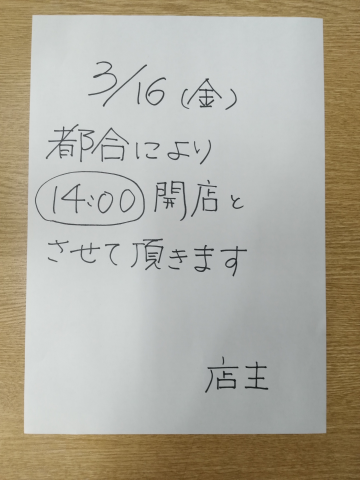 3/16(金)
都合により
14:00 開店と
させて頂きます
店主